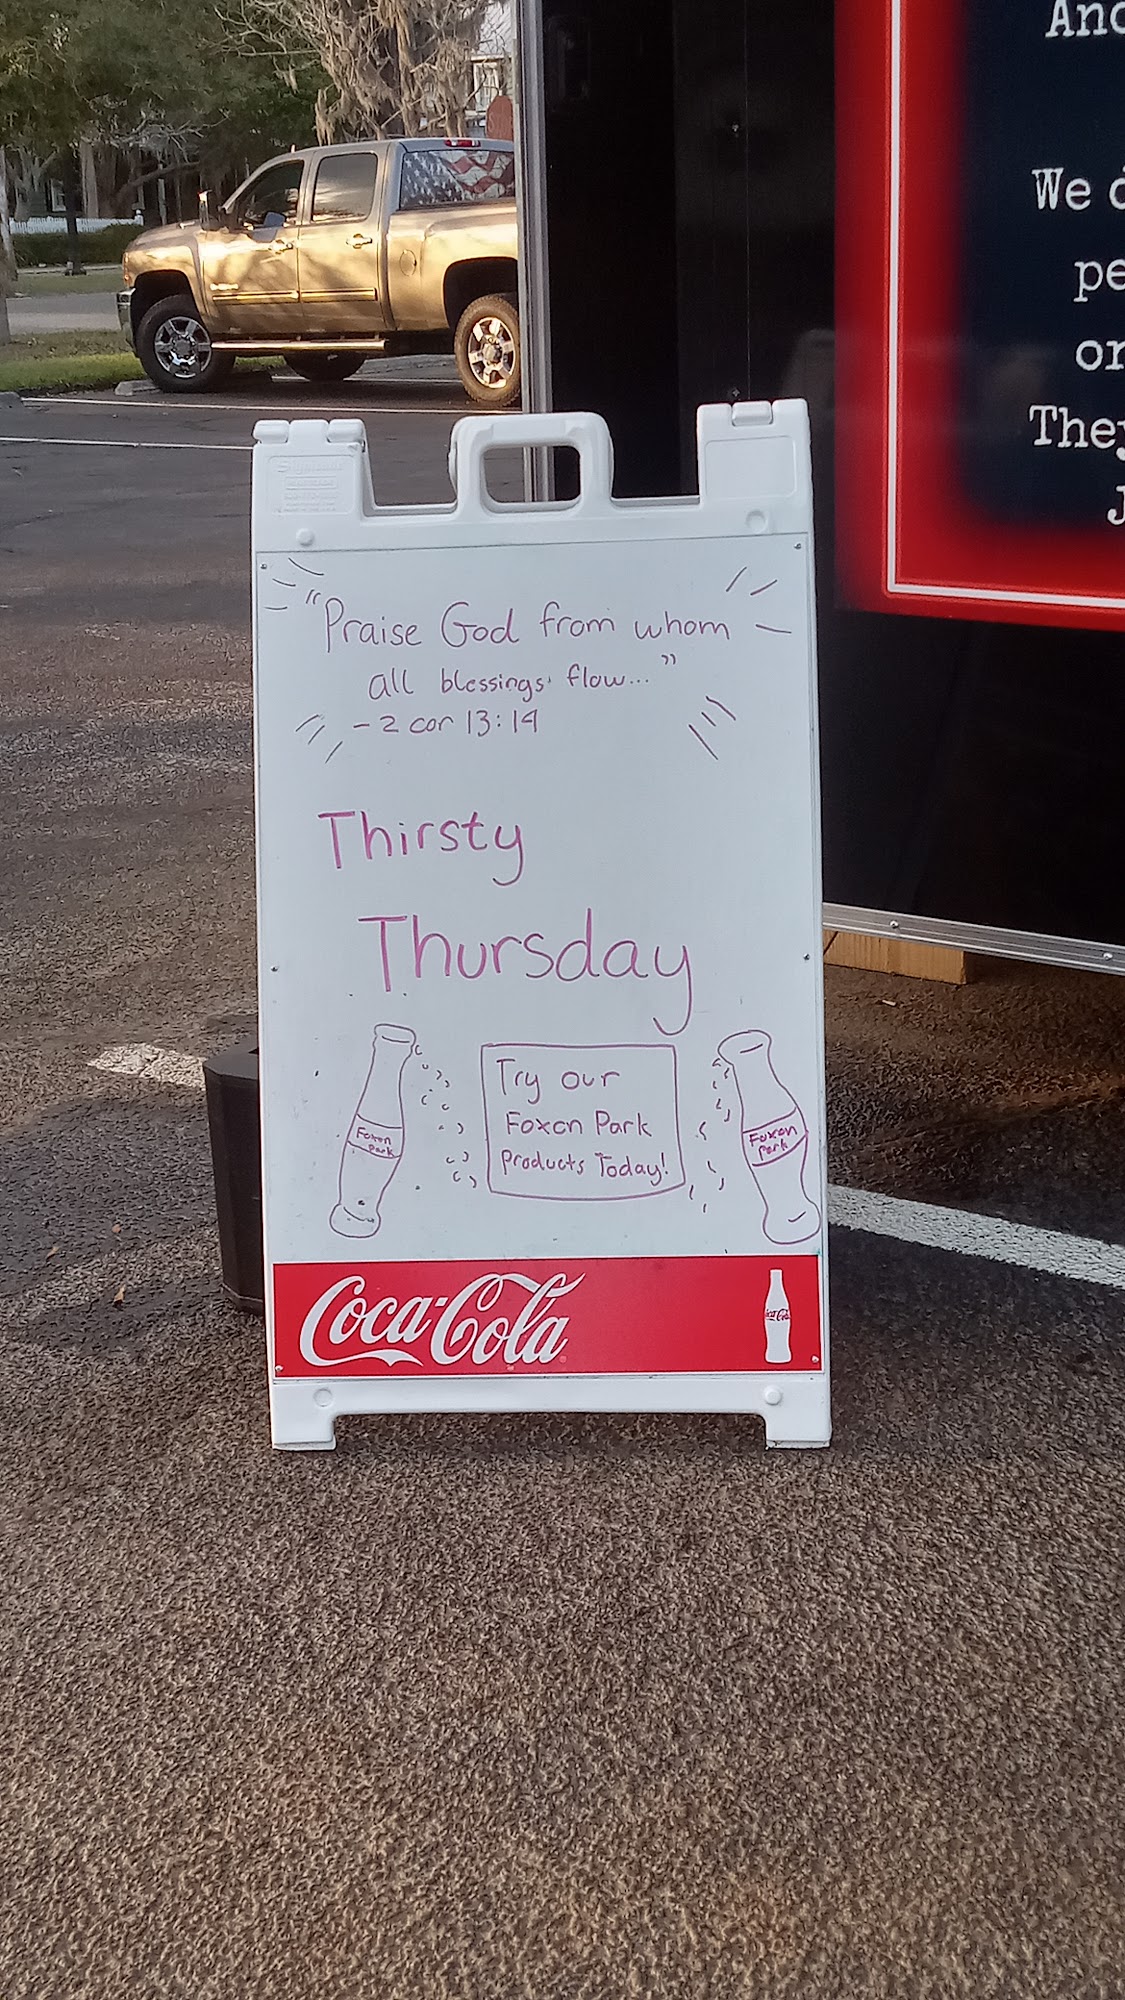 And
We d
pe
or
They
J
"Praise God from whom
all blessings flow..."
- 2 cor 13:14
Thirsty
Thursday
Try our
Foxon Park
products Today!
Foxon
Park
Foxon
Park
Coca-Cola
Coca-Cola